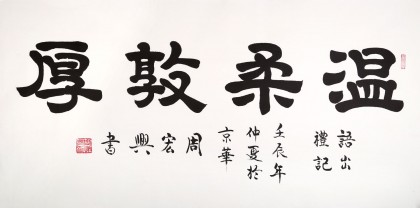 温柔敦厚
語出
禮記
壬辰年
仲夏於
京華
周
宏
興
書